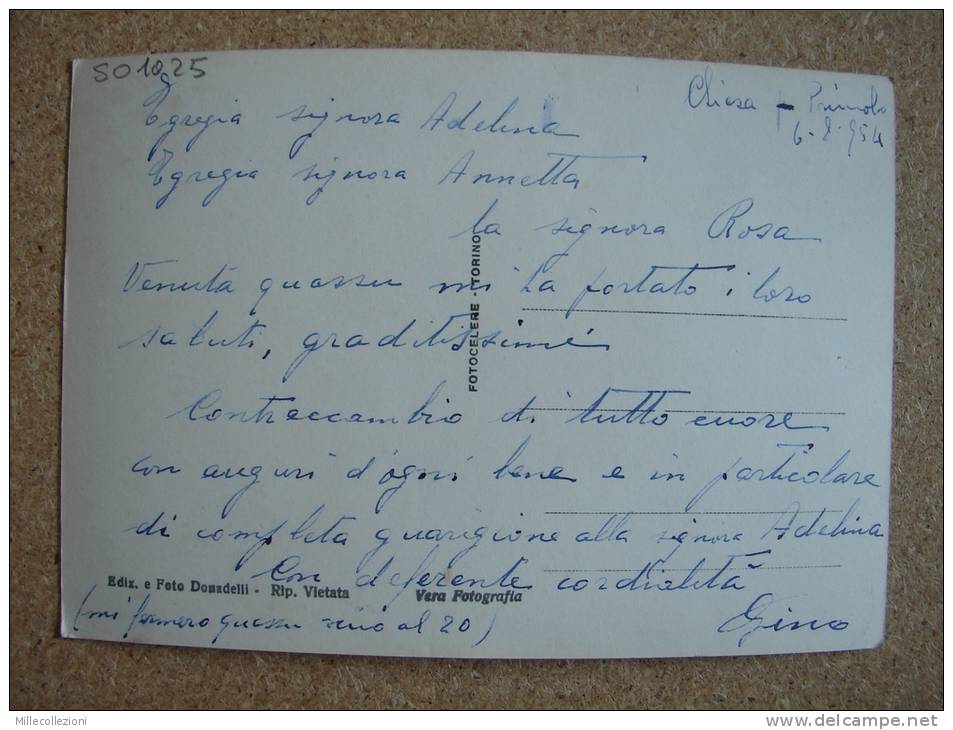 SO 1025
Chiesa - Primolo
6-8-954
Egregia signora Adelina
Egregia signora Annetta
la signora Rosa
Venuta quassu mi ha portato i loro
saluti, graditissimi
Contraccambio di tutto cuore
con auguri d'ogni bene e in particolare
di completa guarigione alla signora Adelina
Con deferente cordialità
Gino
(mi fermerò quassu sino al 20)
FOTOCELERE - TORINO
Ediz. e Foto Donadelli - Rip. Vietata Vera Fotografia
Millecollezioni
delcampe.net